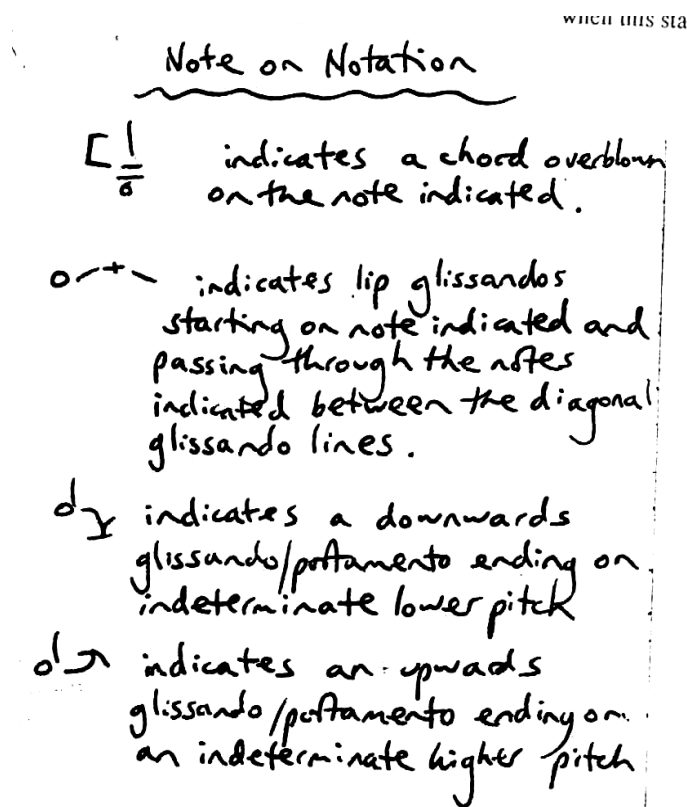 when this sta
Note on Notation
indicates a chord overblown
on the note indicated.
indicates lip glissandos
starting on note indicated and
passing through the notes
indicated between the diagonal
glissando lines.
indicates a downwards
glissando/portamento ending on
indeterminate lower pitch
indicates an upwads
glissando/portamento ending on
an indeterminate higher pitch